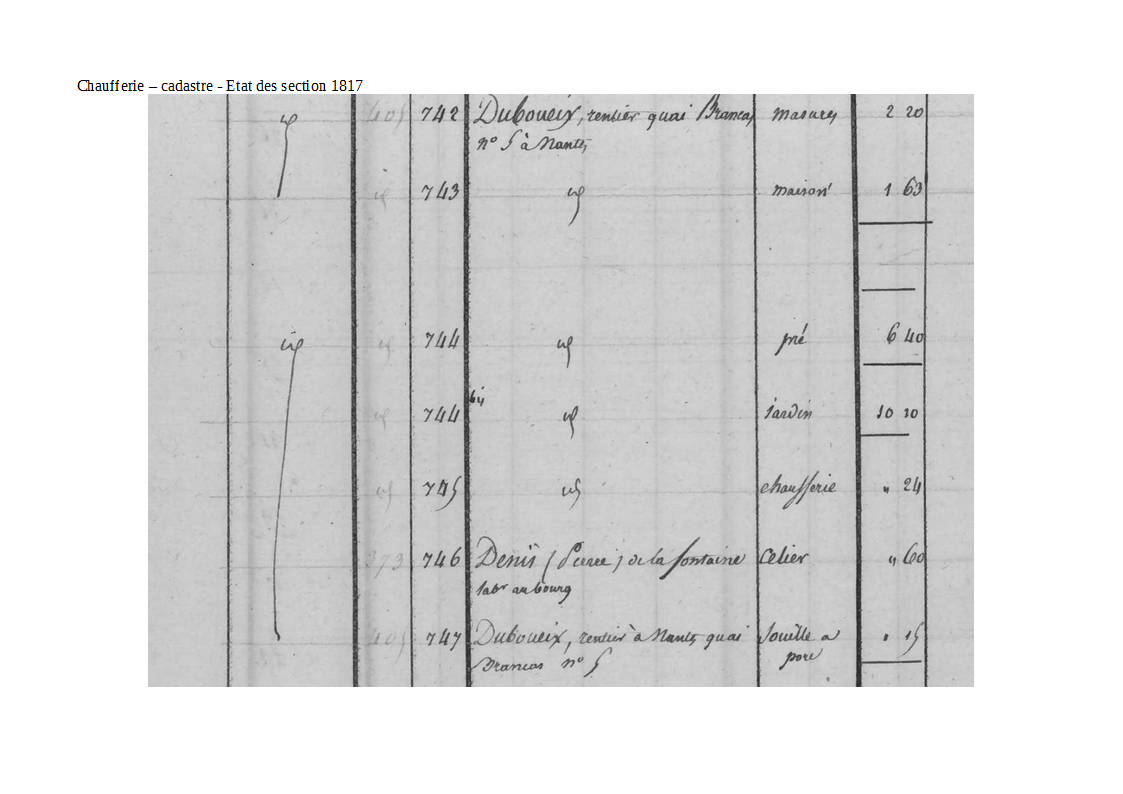 Chaufferie – cadastre - Etat des section 1817
405 742 Duboueix, rentier quai Brancas masures 2 20
n° 5 à Nantes
id 743 id maison 1 63
id id 744 id pré 6 40
id 744 bis id jardin 10 10
id 745 id chaufferie " 24
373 746 Denis (Pierre) de la fontaine Celier " 60
labr au bourg
405 747 Duboueix, rentier à Nantes quai Souille a " 15
Brancas n° 5 porc